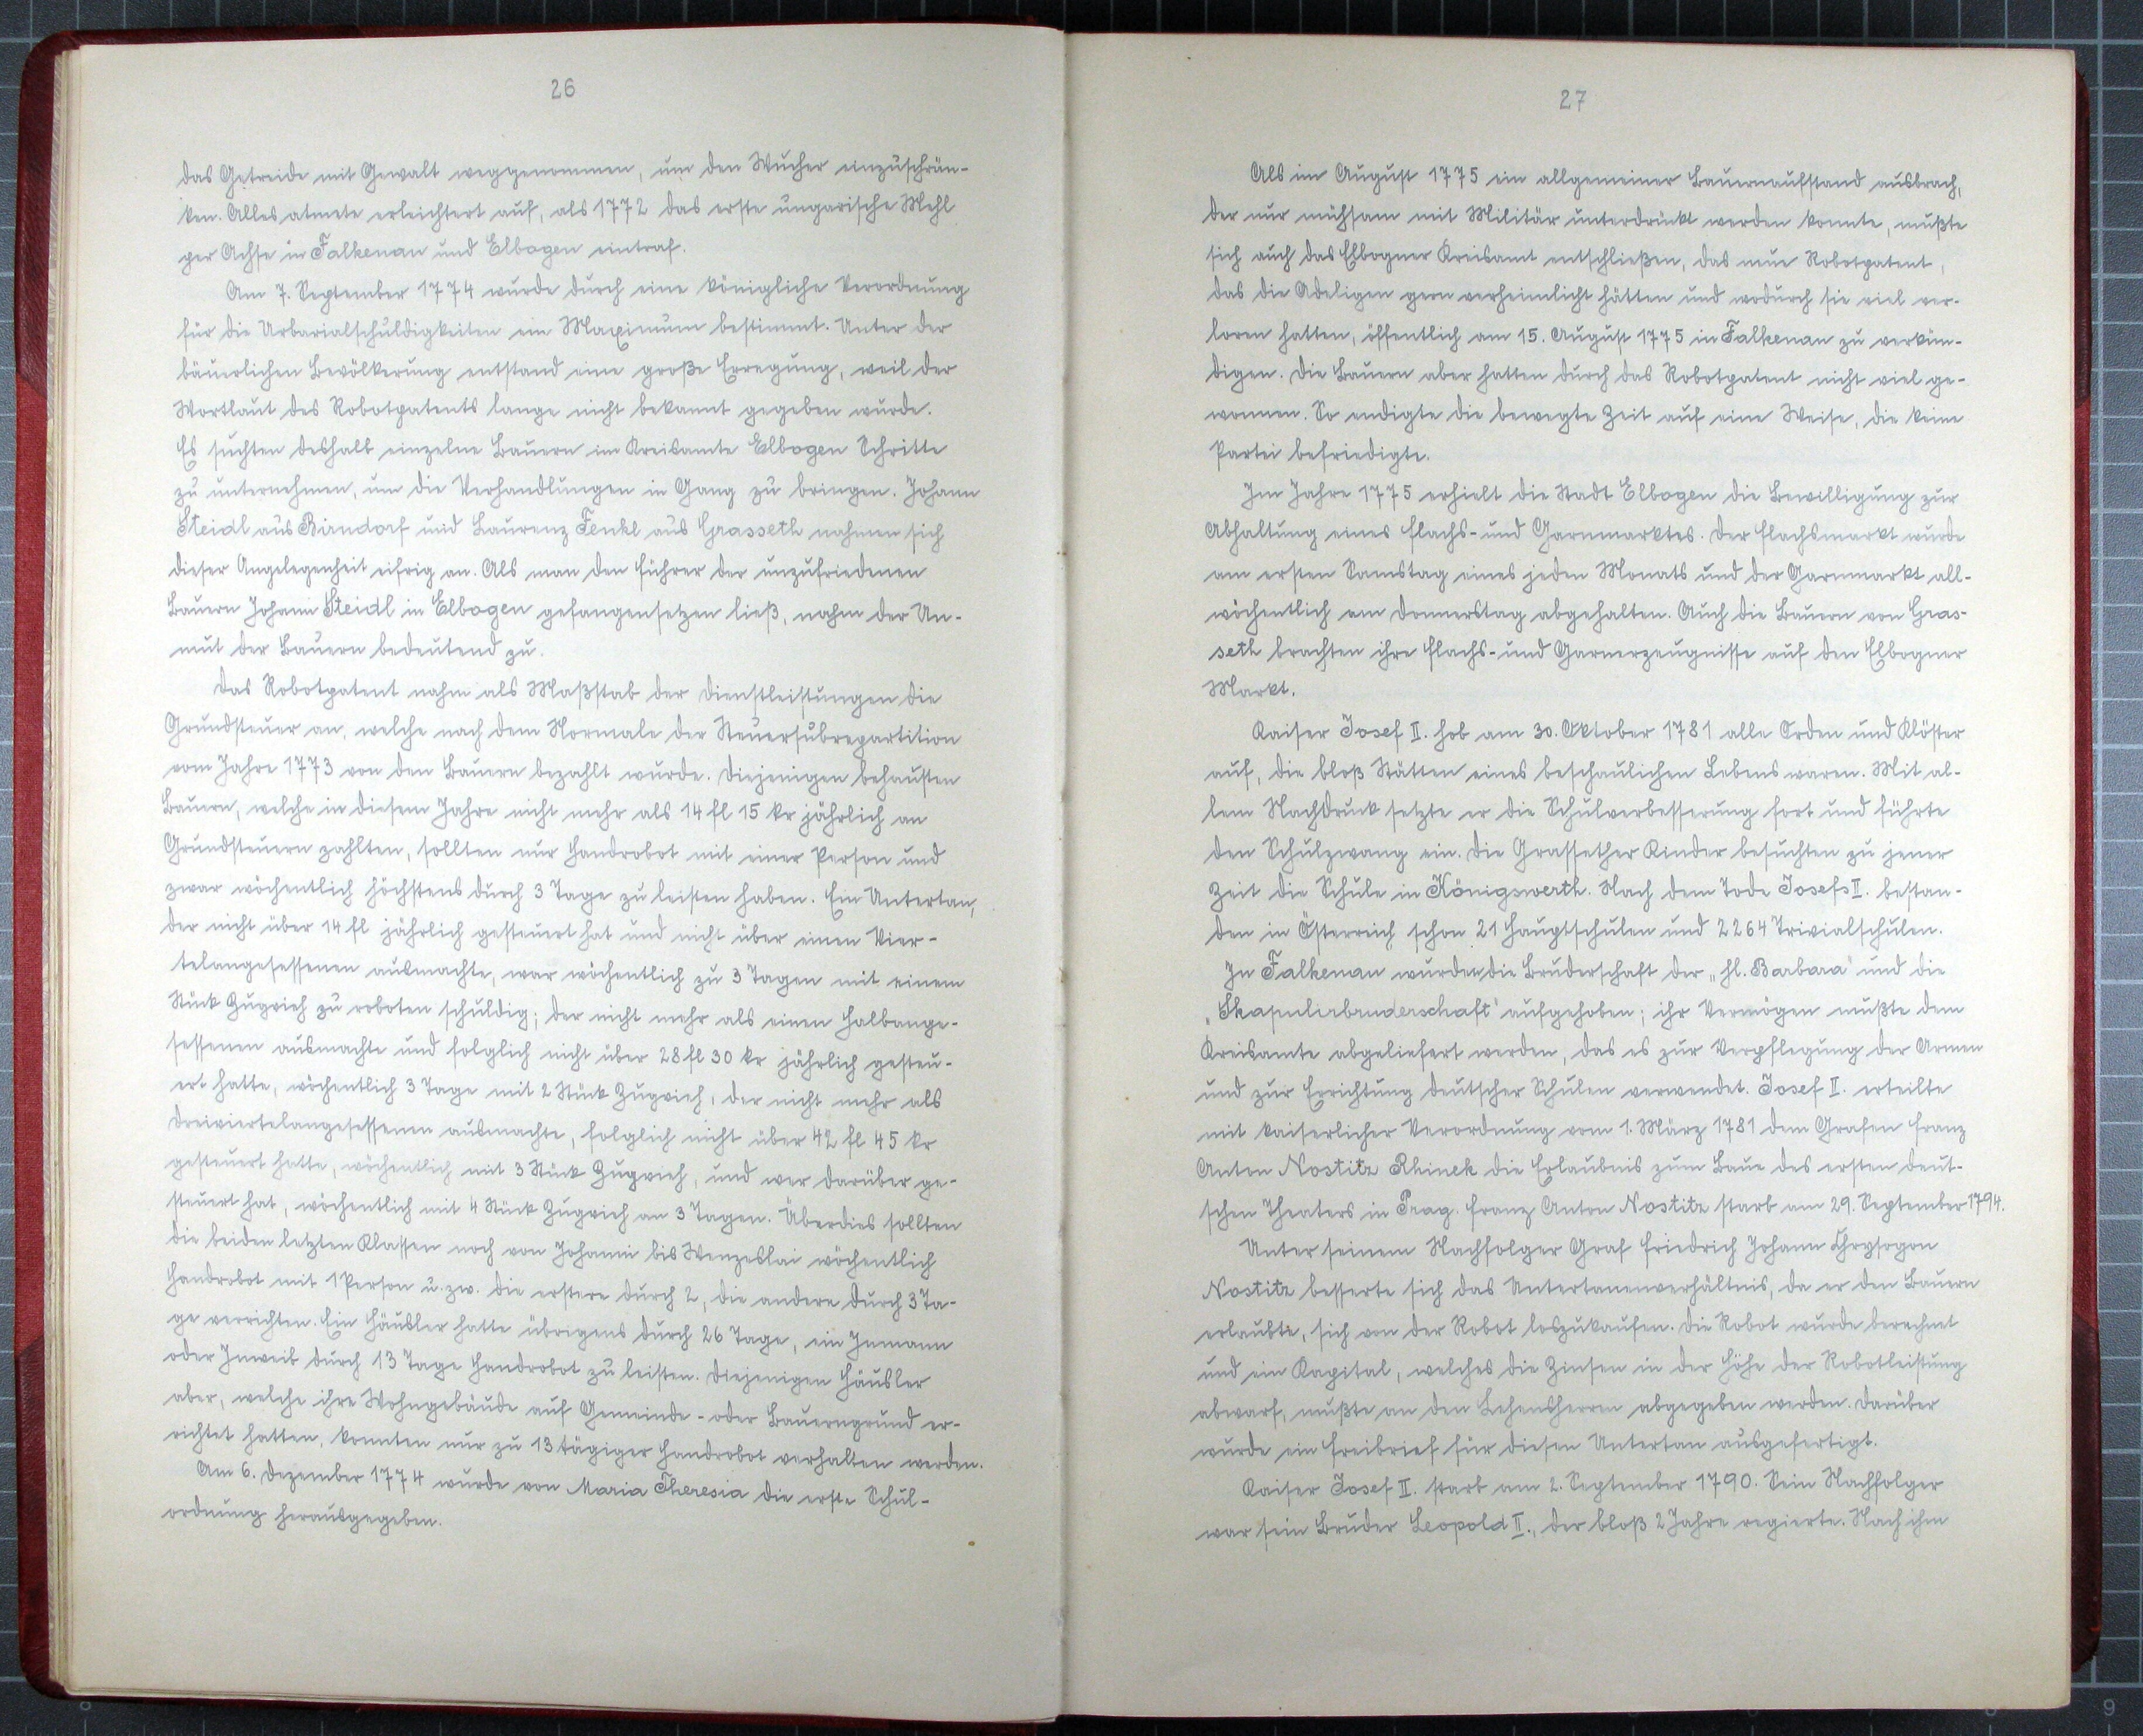 26
das Getreide mit Gewalt weggenommen, um den Wucher einzuschrän-
ken. Alles atmete erleichtert auf, als 1772 das erste ungarische Mehl
per Achse in Falkenau und Elbogen eintraf.
Am 7. September 1774 wurde durch eine königliche Verordnung
für die Urbarialschuldigkeiten ein Maximum bestimmt. Unter der
bäuerlichen Bevölkerung entstand eine große Erregung, weil der
Wortlaut des Robotpatents lange nicht bekannt gegeben wurde.
Es suchten deshalb einzelne Bauern im Kreisamte Elbogen Schritte
zu unternehmen, um die Verhandlungen in Gang zu bringen. Johann
Steidl aus Birndorf und Laurenz Fenkl aus Grasseth nahmen sich
dieser Angelegenheit eifrig an. Als man den Führer der unzufriedenen
Bauern Johann Steidl in Elbogen gefangensetzen ließ, nahm der Un-
mut der Bauern bedeutend zu.
Das Robotpatent nahm als Maßstab der Dienstleistungen die
Grundsteuer an, welche nach dem Normale der Steuersubrepartition
vom Jahre 1773 von den Bauern bezahlt wurde. Diejenigen behausten
Bauern, welche in diesem Jahre nicht mehr als 14 fl 15 kr jährlich an
Grundsteuern zahlten, sollten nur Handrobot mit einer Person und
zwar wöchentlich höchstens durch 3 Tage zu leisten haben. Ein Untertan,
der nicht über 14 fl jährlich gesteuert hat und nicht über einen Vier-
telangesessenen ausmachte, war wöchentlich zu 3 Tagen mit einem
Stück Zugvieh zu roboten schuldig; der nicht mehr als einen Halbange-
sessenen ausmachte und folglich nicht über 28 fl 30 kr jährlich gesteu-
ert hatte, wöchentlich 3 Tage mit 2 Stück Zugvieh, der nicht mehr als
Dreiviertelangesessenen ausmachte, folglich nicht über 42 fl 45 kr
gesteuert hatte, wöchentlich mit 3 Stück Zugvieh, und wer darüber ge-
steuert hat, wöchentlich mit 4 Stück Zugvieh an 3 Tagen. Überdies sollten
die beiden letzten Klassen noch von Johanni bis Wenzeslai wöchentlich
Handrobot mit 1 Person u. zw. die erstere durch 2, die andere durch 3 Ta-
ge verrichten. Ein Häusler hatte übrigens durch 26 Tage, ein Inmann
oder Inweib durch 13 Tage Handrobot zu leisten. Diejenigen Häusler
aber, welche ihre Wohngebäude auf Gemeinde- oder Bauerngrund er-
richtet hatten, konnten nur zu 13 tägiger Handrobot verhalten werden.
Am 6. Dezember 1774 wurde von Maria Theresia die erste Schul-
ordnung herausgegeben.
27
Als im August 1775 ein allgemeiner Bauernaufstand ausbrach,
der nur mühsam mit Militär unterdrückt werden konnte, mußte
sich auch das Elbogner Kreisamt entschließen, das neue Robotpatent,
das die Adeligen gern verheimlicht hätten und wodurch sie viel ver-
loren hatten, öffentlich am 15. August 1775 in Falkenau zu verkün-
digen. Die Bauern aber hatten durch das Robotpatent nicht viel ge-
wonnen. So endigte die bewegte Zeit auf eine Weise, die keine
Partei befriedigte.
Im Jahre 1775 erhielt die Stadt Elbogen die Bewilligung zur
Abhaltung eines Flachs- und Garnmarktes. Der Flachsmarkt wurde
am ersten Samstag eines jeden Monats und der Garnmarkt all-
wöchentlich am Donnerstag abgehalten. Auch die Bauern von Gras-
seth brachten ihre Flachs- und Garnerzeugnisse auf den Elbogner
Markt.
Kaiser Josef II. hob am 30. Oktober 1781 alle Orden und Klöster
auf, die bloß Stätten eines beschaulichen Lebens waren. Mit al-
lem Nachdruck setzte er die Schulverbesserung fort und führte
den Schulzwang ein. Die Grassether Kinder besuchten zu jener
Zeit die Schule in Königswerth. Nach dem Tode Josefs II. bestan-
den in Österreich schon 21 Hauptschulen und 2264 Trivialschulen.
In Falkenau wurden die Bruderschaft der „hl. Barbara" und die
„Skapulierbruderschaft" aufgehoben; ihr Vermögen mußte dem
Kreisamte abgeliefert werden, das es zur Verpflegung der Armen
und zur Errichtung deutscher Schulen verwendet. Josef II. erteilte
mit kaiserlicher Verordnung vom 1. März 1781 dem Grafen Franz
Anton Nostitz Rhinek die Erlaubnis zum Baue des ersten deut-
schen Theaters in Prag. Franz Anton Nostitz starb am 29. September 1794.
Unter seinem Nachfolger Graf Friedrich Johann Chrysogon
Nostitz besserte sich das Untertanenverhältnis, da er den Bauern
erlaubte, sich von der Robot loszukaufen. Die Robot wurde berechnet
und ein Kapital, welches die Zinsen in der Höhe der Robotleistung
abwarf, mußte an den Lehensherren abgegeben werden. Darüber
wurde ein Freibrief für diesen Untertan ausgefertigt.
Kaiser Josef II. starb am 2. September 1790. Sein Nachfolger
war sein Bruder Leopold II., der bloß 2 Jahre regierte. Nach ihm
8
9